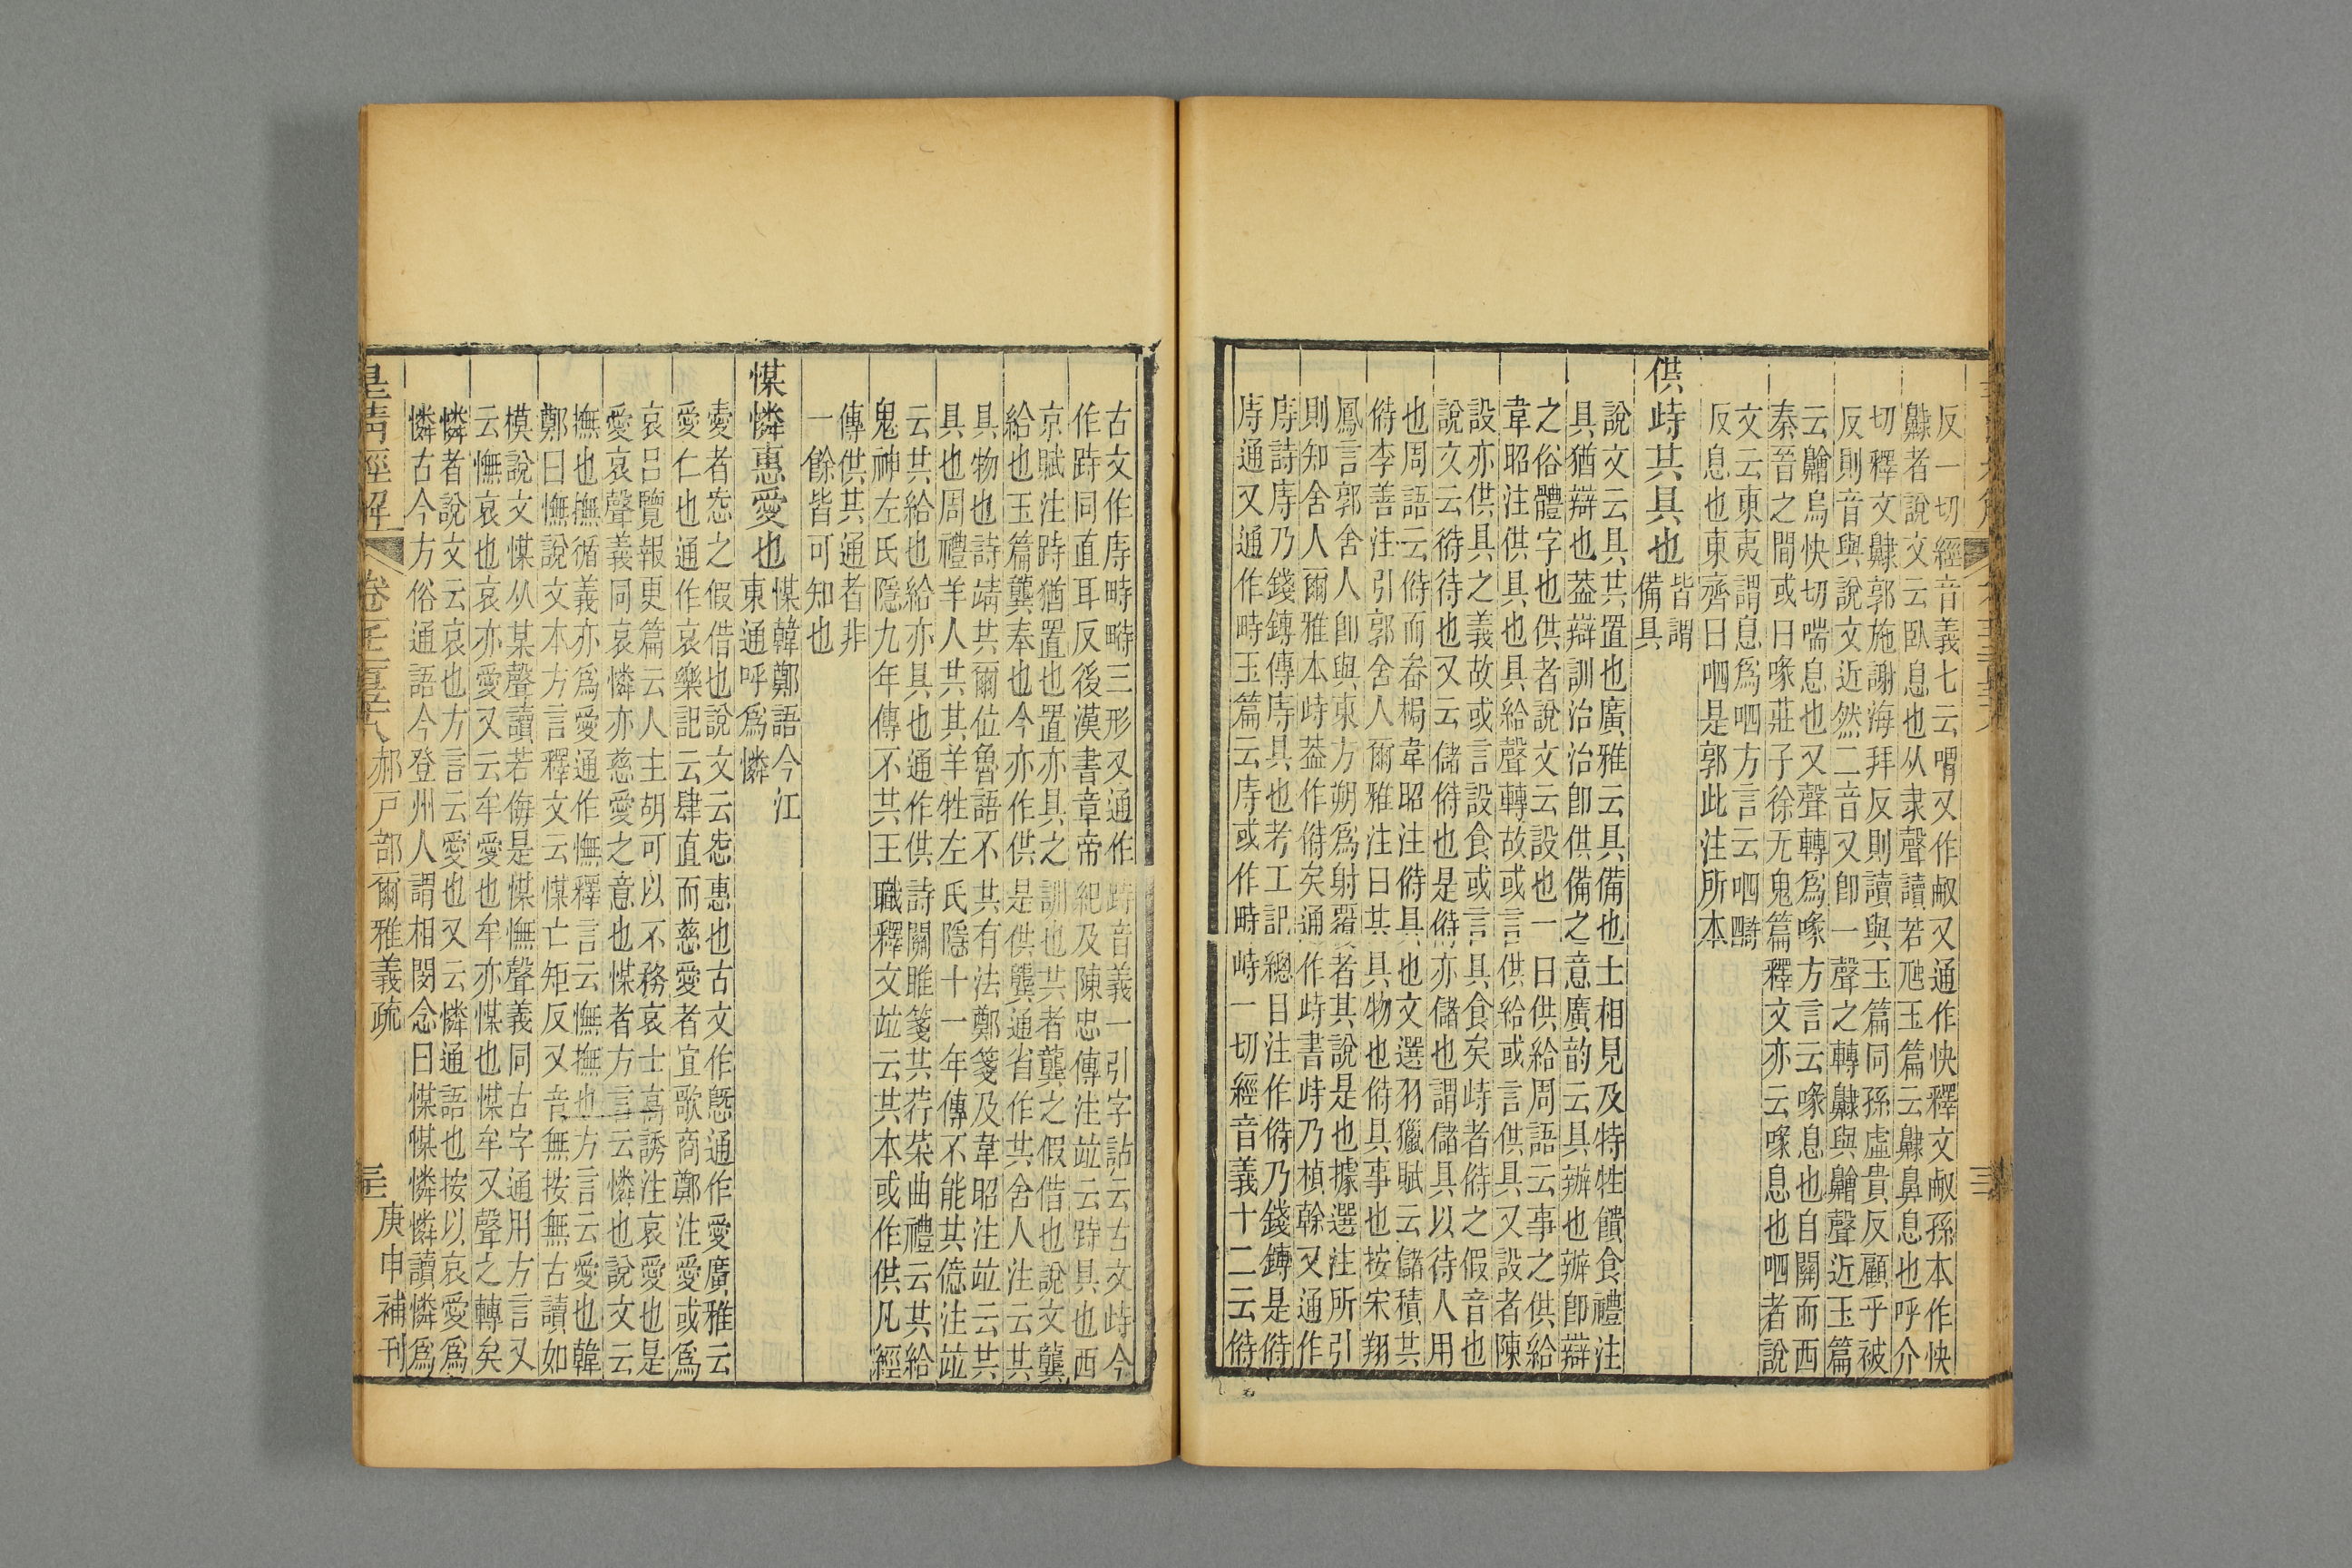 反一切經音義七云喟又作㕟又通作快釋文㕟孫本作快
齂者說文云臥息也从隶聲讀若虺玉篇云齂鼻息也呼介
切釋文齂郭施謝海拜反則讀與玉篇同孫虛貴反顧乎被
反則音與說文近然二音又卽一聲之轉齂與䶐聲近玉篇
云䶐烏快切喘息也又聲轉爲喙方言云喙息也自關而西
秦晉之閒或曰喙莊子徐无鬼篇釋文亦云喙息也呬者說
文云東夷謂息爲呬方言云呬䶑
反息也東齊曰呬是郭此注所本
供峙共具也
皆謂
備具
說文云具共置也廣雅云具備也士相見及特牲饋食禮注
具猶辯也葢辯訓治治卽供備之意廣韵云具辦也辦卽辯
之俗體字也供者說文云設也一曰供給周語云事之供給
韋昭注供具也具給聲轉故或言供給或言供具又設者陳
設亦供具之義故或言設食或言具食矣峙者偫之假音也
說文云偫待也又云儲偫也是偫亦儲也謂儲具以待人用
也周語云偫而畚梮韋昭注偫具也文選羽獵賦云儲積共
偫李善注引郭舍人爾雅注曰共具物也偫具事也按宋翔
鳳言郭舍人卽與東方朔爲射覆者其說是也據選注所引
則知舍人爾雅本峙葢作偫矣通作峙書峙乃楨榦又通作
庤詩庤乃錢鎛傳庤具也考工記總目注作偫乃錢鎛是偫
庤通又通作畤玉篇云庤或作畤峙一切經音義十二云偫
古文作庤畤畤三形又通作跱音義一引字詁云古文峙今
作跱同直耳反後漢書章帝紀及陳忠傳注竝云跱具也西
京賦注時猶置也置亦具之訓也共者龔之假借也說文龔
給也玉篇龔奉也今亦作供是供龔通省作共舍人注云共
具物也詩靖共爾位魯語不共有法鄭箋及韋昭注竝云共
具也周禮羊人共其羊牲左氏隱十一年傳不能其億注竝
云共給也給亦具也通作供詩關睢箋共荇菜曲禮云共給
鬼神左氏隱九年傳不共王職釋文竝云共本或作供凡經
傳供共通者非
一餘皆可知也
㥠憐惠愛也
㥠韓鄭語今江
東通呼爲憐
㤅者㤅之假借也說文云㤅惠也古文作㤅通作愛廣雅云
愛仁也通作哀樂記云肆直而慈愛者宜歌商鄭注愛或爲
哀呂覽報更篇云人主胡可以不務哀士高誘注哀愛也是
愛哀聲義同哀憐亦慈愛之意也㥠者方言云憐也說文云
撫也撫循義亦爲愛通作憮釋言云憮撫也方言云愛也韓
鄭曰憮說文本方言釋文云㥠亡矩反又音無按無古讀如
模說文㥠从某聲讀若侮是㥠憮聲義同古字通用方言又
云憮哀也哀亦愛又云牟愛也牟亦㥠也㥠牟又聲之轉矣
憐者說文云哀也方言云愛也又云憐通語也按以哀愛爲
憐古今方俗通語今登州人謂相閔念曰㥠㥠憐憐讀憐爲
皇清經解 卷 郝戶部爾雅義疏 庚申補刊